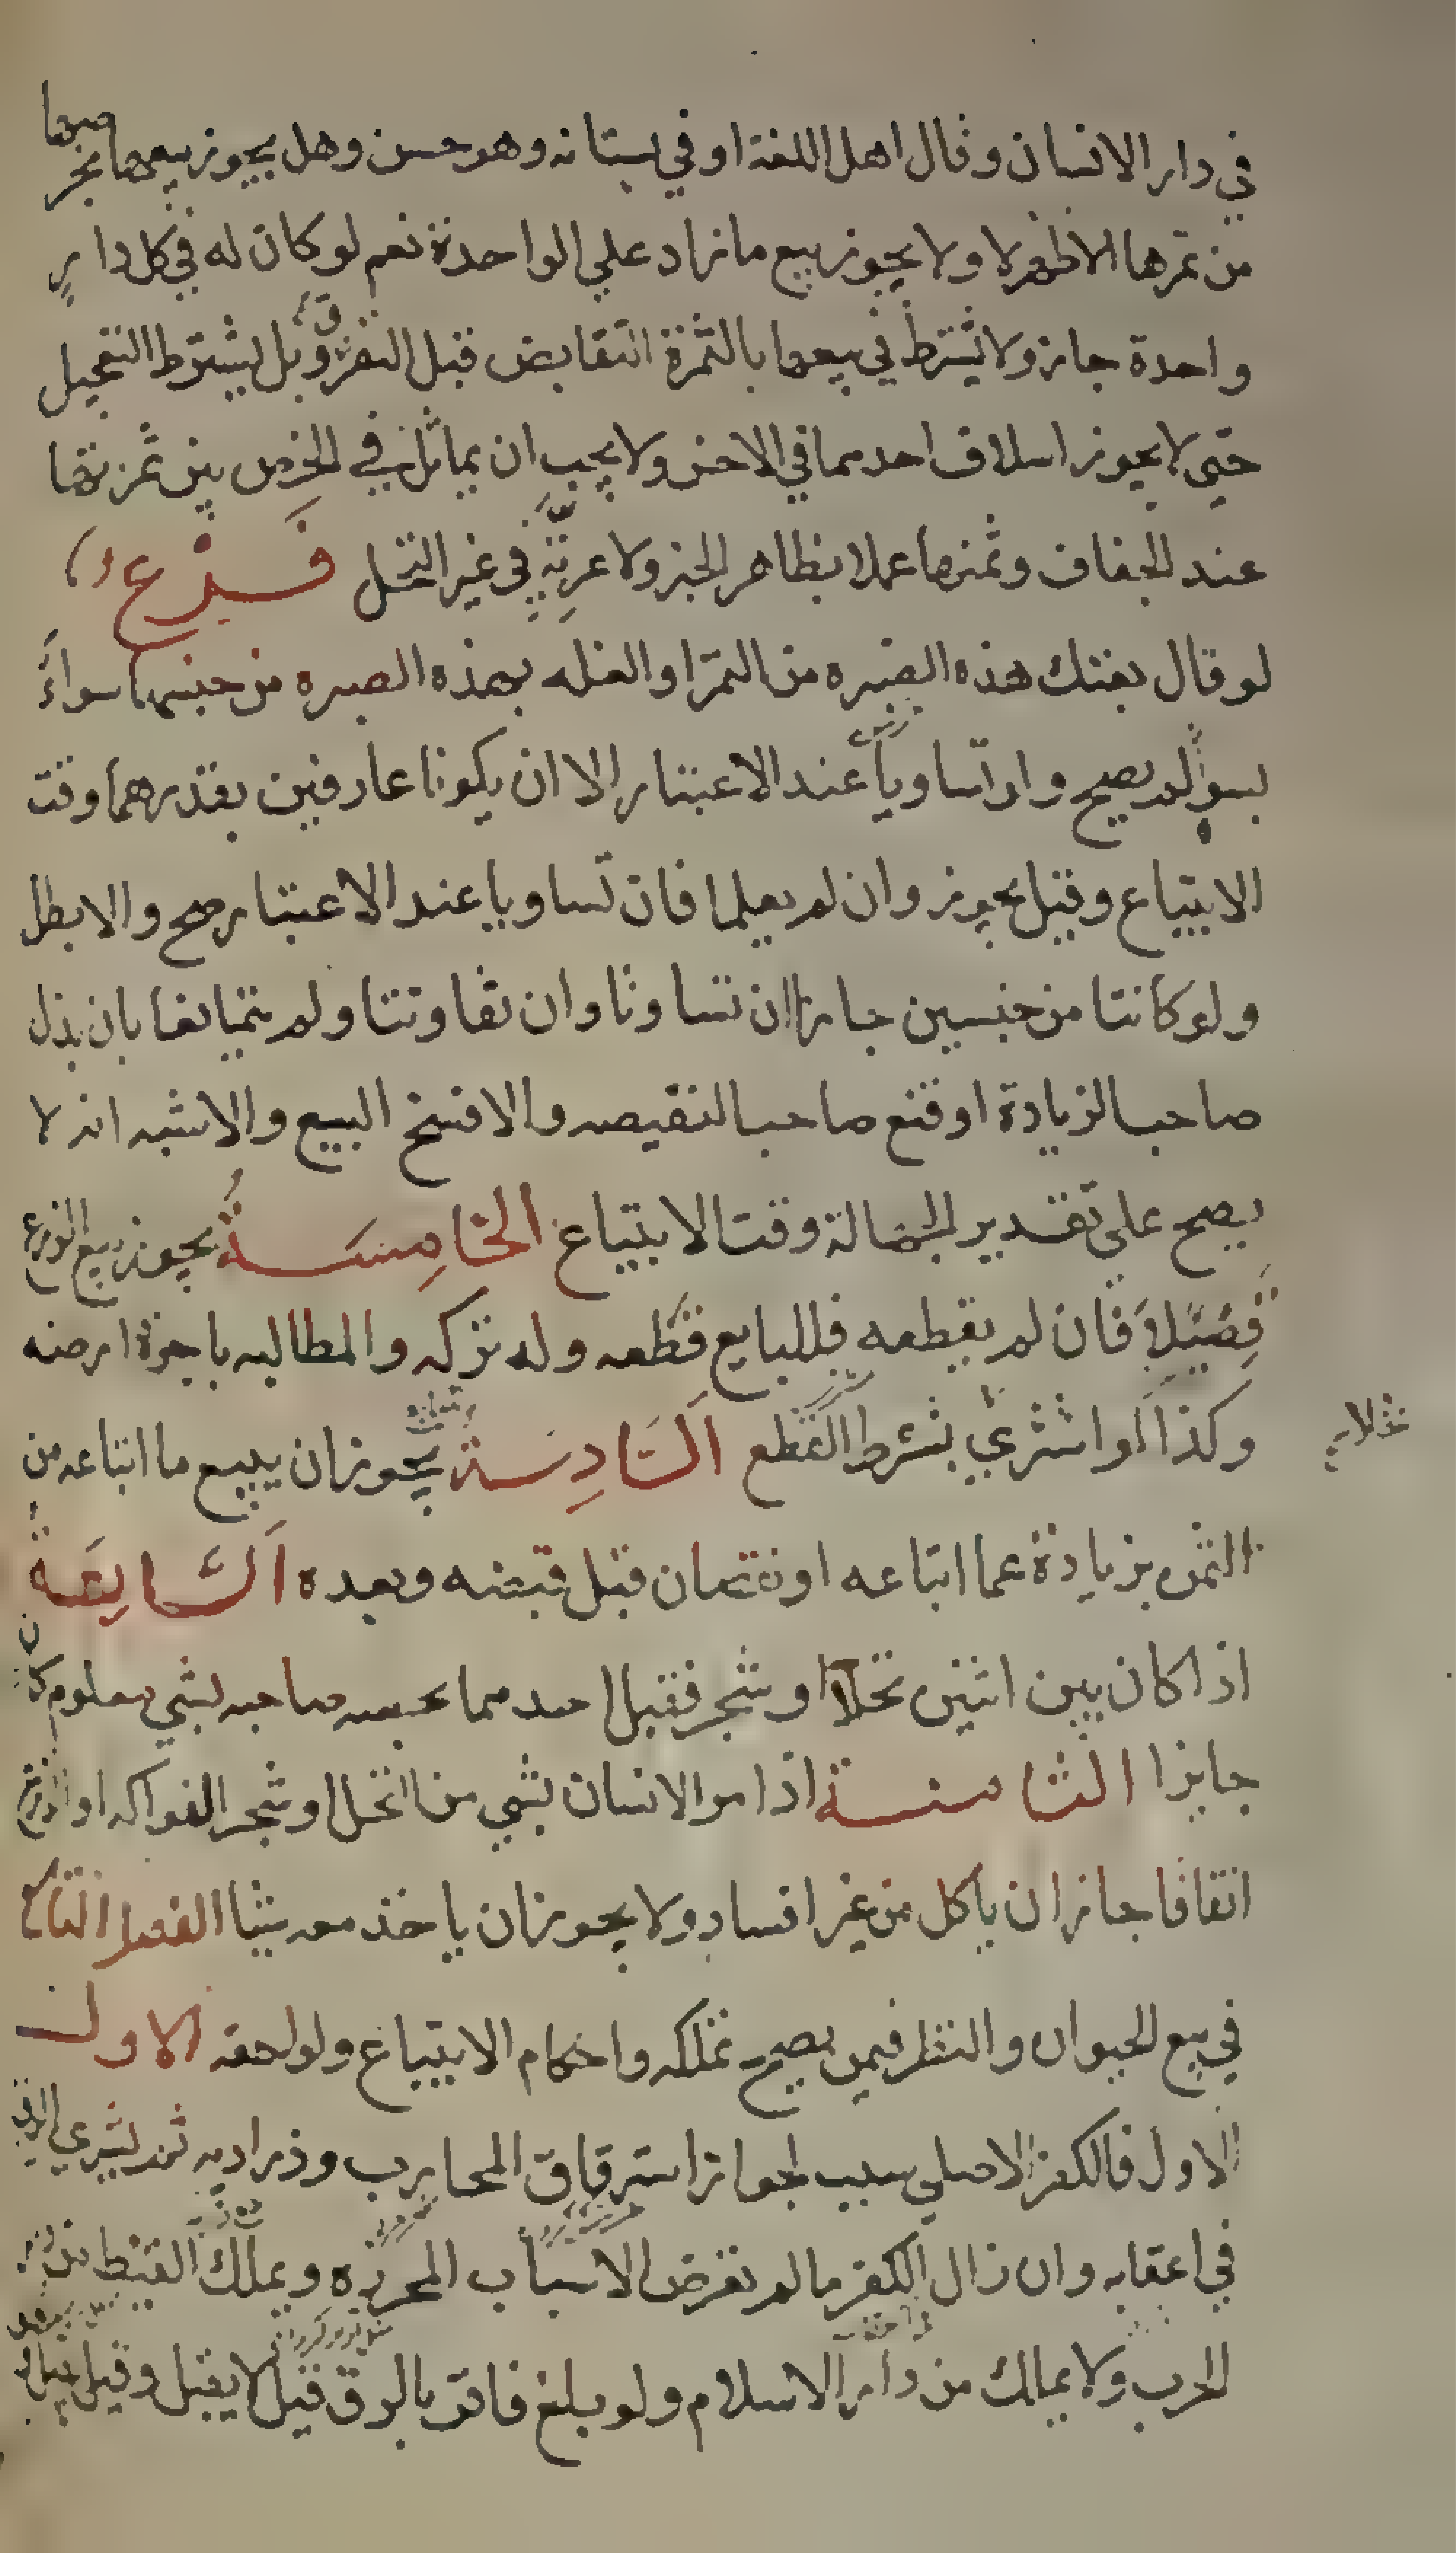 في دار الانسان وقال اهل اللغة او في بستانه وهو حسن وهل يجوز بيعها بخرصها
من تمرها الاظهر لا ولا يجوز بيع ما زاد علي الواحدة نعم لو كان له في كل دارٍ
واحدة جاز ولا يشترط في بيعها بالثمرة التقابض قبل التفرق بل يشترط التعجيل
حتي لا يجوز اسلاف احدهما في الاخر ولا يجب ان يماثل في الخرص بين ثمرتها
عند الجفاف وثمنها عملا بظاهر الخبر ولا عريّةٍ في غير النخل فرع
لو قال بعتك هذه الصبره من التمر او الغله بهذه الصبره من جنسها سواءً
بسواء لم يصح وان تساويا عند الاعتبار الا ان يكونا عارفين بقدرهما وقت
الابتياع وقيل يجوز وان لم يعلما فان تساويا عند الاعتبار صح والا بطل
ولو كانتا من جنسين جاز ان تساوتا وان تفاوتتا ولم يتمانعا بان بذل
صاحب الزيادة او قنع صاحب النقيصه والا فسخ البيع والاشبه انه لا
يصح علي تقدير الجهالة وقت الابتياع الخامسةُ يجوز بيع الزرع
قصيلا فان لم يقطعه فللبايع قطعه وله تركه والمطالبه باجرة ارضه
وكذا لو اشتري بشرط القطع السادسة يجوز ان يبيع ما ابتاعه من
نخلا
الثمره بزيادة عما ابتاعه او نقصان قبل قبضه وبعده السابعةُ
اذا كان بين اثنين نخلا او شجر فقبل احدهما بحصه صاحبه بشي معلوم كان
جايزا الثامنسة اذا مر الانسان بشي من النخل او شجر الفواكه او الزرع
اتفاقا جاز ان ياكل من غير افساد ولا يجوز ان ياخذ معه شيئا الفصل التاسع
في بيع الحيوان والنظر فيمن يصح تملكه واحكام الابتياع ولواحقه الاول
الاول فالكفر الاصلي سبب لجواز استرقاق المحارب وذراريه ثم يسري الرق
في اعقابه وان زال الكفر ما لم تعرض الاسباب المحررة ويملك اللقيط من دار
الحرب ولا يملك من دار الاسلام ولو بلغ فاقر بالرق قيل لا يقبل وقيل يقبل